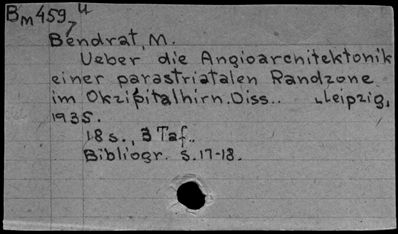 Bm459,u
7
Bendrat, M.
Ueber die Angioarchitektonik
einer parastriatalen Randzone
im Okzipitalhirn. Diss.. Leipzig,
1935.
18 s., 3 Taf..
Bibliogr. s. 17-18.